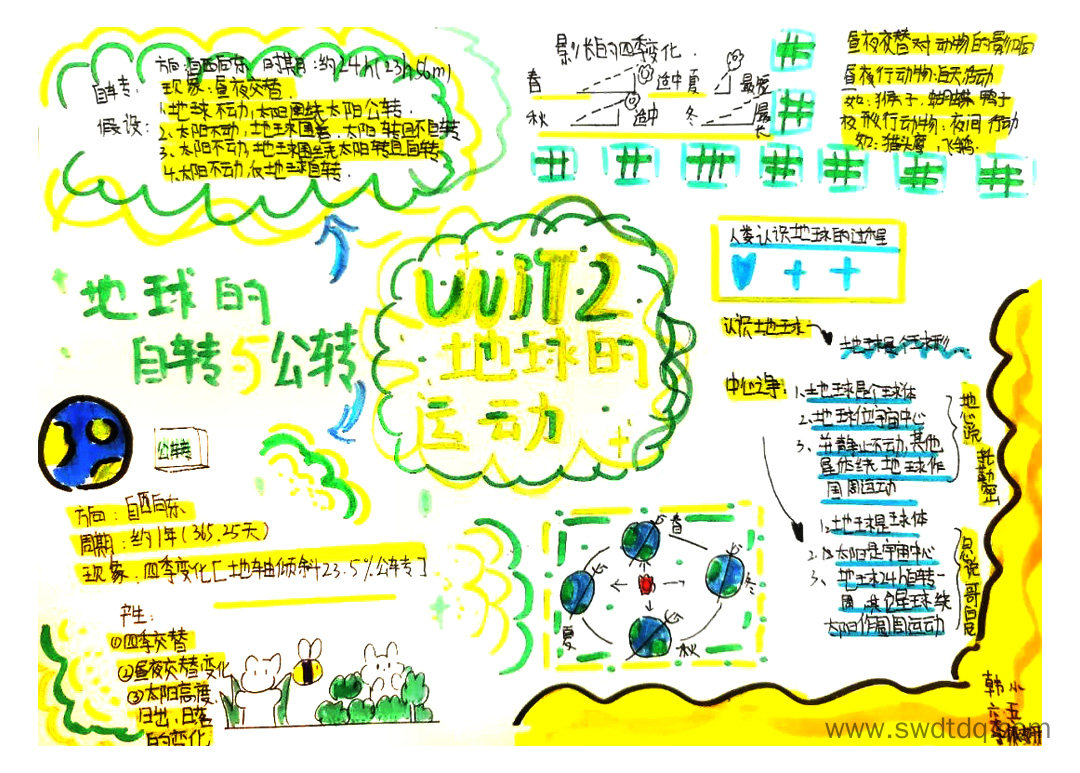 方向：自西向东 时期：约24h(23h56m)
自转：
现象：昼夜交替
假设：
1.地球不动,太阳围绕太阳公转.
2.太阳不动,地球围着,太阳转但不自转
3、太阳不动,地球围绕太阳转且自转
4.太阳不动,仅地球自转.
影长的四季变化.
春
适中
夏
最短
秋
适中
冬
最长
昼夜交替对动物的影响
昼夜行动物:白天活动
如:猴子,蝴蝶,鸭子
夜形行动物:夜间行动
如:猫头鹰,飞鹅.
地球的
自转与公转
UNIT2
地球的
运动
人类认识地球的过程
认识地球
地球是行球形
中心之争:
1.地球是个球体
2.地球位宇宙中心
3、并静止不动,其他
星体绕地球作
圆周运动
地心说
托勒密
1.地球是球体
2.以太阳是宇宙中心
3、地球24h自转一
周 其它星球绕
太阳作圆周运动
日心说 哥白尼
公转
方向:自西向东
周期:约1年(365.25天)
现象.四季变化[地轴倾斜23.5%公转]
产生:
①四季交替
②昼夜交替变化
③太阳高度
日出,日落
的变化
春
冬
夏
秋
韩小
六五
www.swdtdq.com